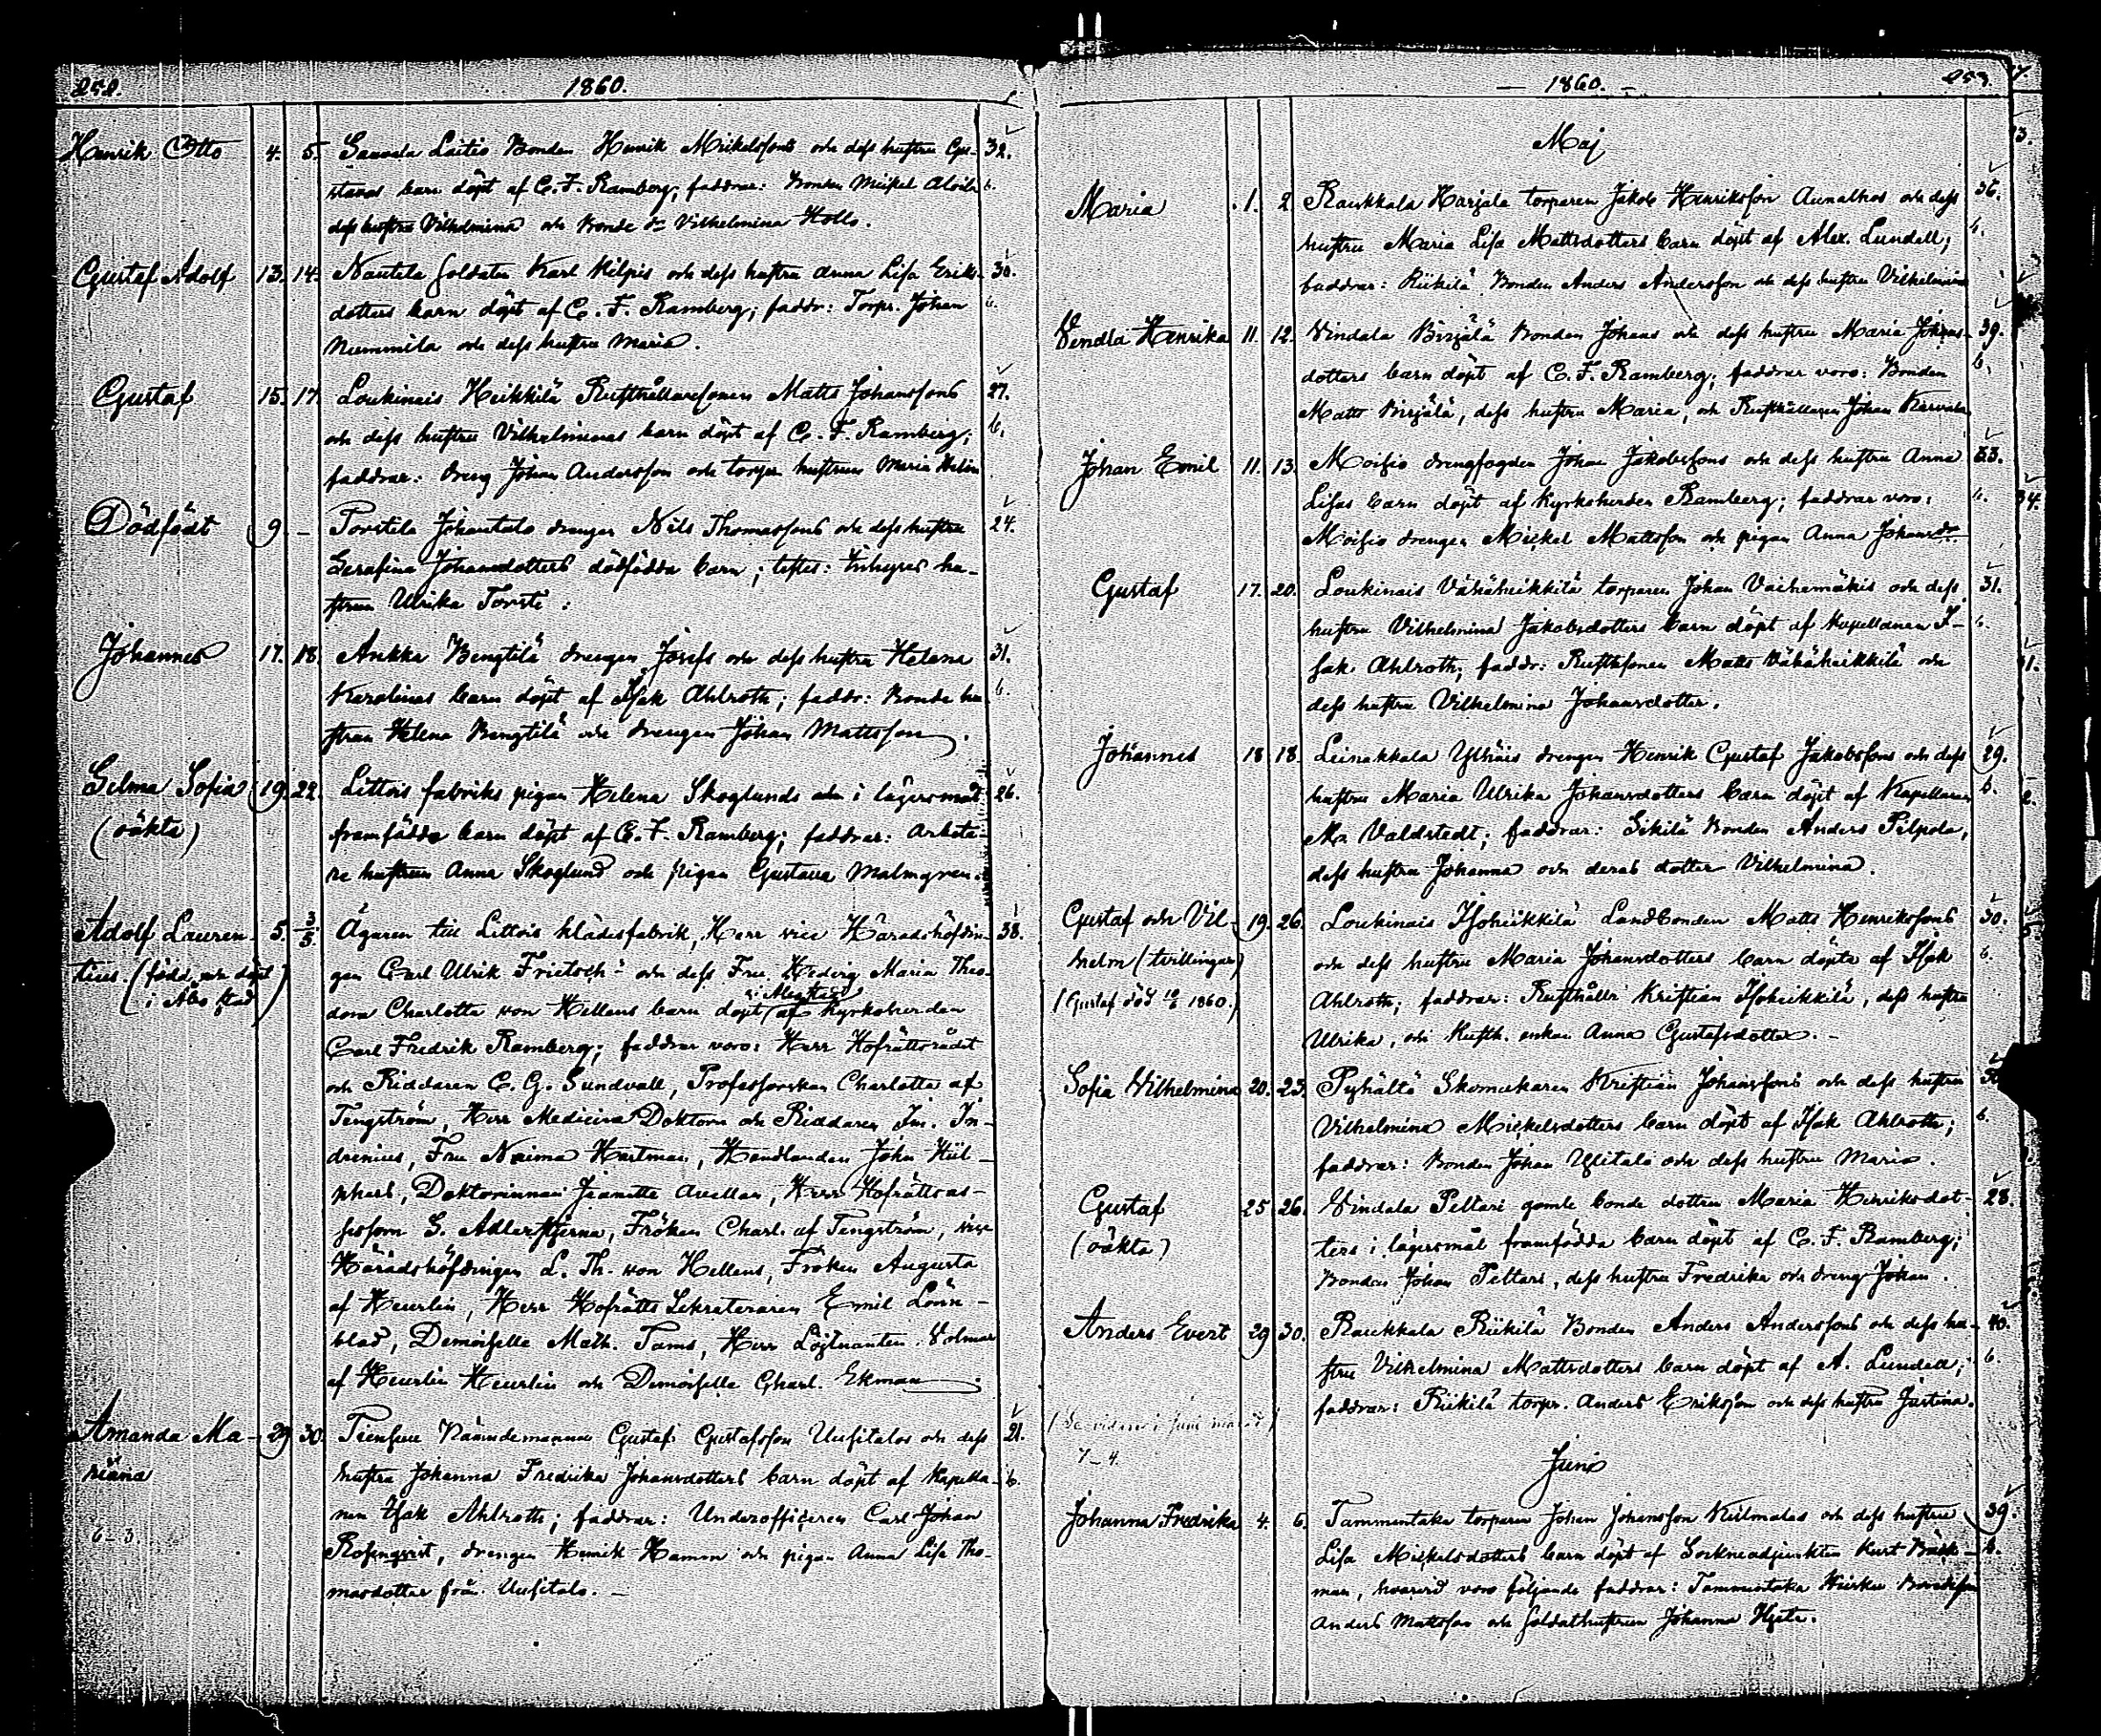 252. 1860.
Henrik Otto 4. 5. Sauvala Laitis Bonden Henrik Mickelssons och dess hustru Gus- 32.
tavas barn döpt af C. F. Ramberg; faddrar: Bonden Mickel Alvila 6.
dess hustru Vilhelmina och Bonde dr Vilhelmina Hollo.
Gustaf Adolf 13. 14. Nautela Soldaten Karl Kilpis och dess hustru Anna Lisa Eriks- 30.
dotters barn döpt af C. F. Ramberg; faddr: Torpr. Johan 6.
Nummila och dess hustru Maria.
Gustaf 15. 17. Loukinais Heikkilä Rusthållaresonen Matts Johanssons 27.
och dess hustru Vilhelminas barn döpt af C. F. Ramberg; 6.
faddrar: dreng Johan Andersson och torpr hustrun Maria Helin
Dödfödt 9. – Torstila Johantalo drengen Nils Thomassons och dess hustru 24.
Serafina Johansdotters dödfödda barn; testes: Inhyses hu-
strun Ulrika Torsti:
Johannes 17. 18. Ankka Bengtilä drengen Josefs och dess hustru Helena 31.
Karolinas barn döpt af Isak Ahlroth; faddr: Bonde hu- 6.
strun Helena Bengtilä och drengen Johan Mattsson.
Selma Sofia 19. 22. Littois fabriks pigan Helena Skoglunds i lägersmål 26.
(oäkta) framfödda barn döpt af C. F. Ramberg; faddrar: arbeta-
re hustrun Anna Skoglund och pigan Gustava Malmgren.
Adolf Lauren- 5. 3/5 Ägaren till Littois klädesfabrik, Herr vice Häradshöfdin- 38.
tius. (född och döpt gen Carl Ulrik Frietsch och dess Fru Hedvig Maria Theo-
i Åbo stad) dora Charlotta von Hellens barn döpt af Kyrkoherden
Carl Fredrik Ramberg; faddrar voro: Herr Hofrättsrådet
och Riddaren C. G. Sundvall, Professorskan Charlotta af
Tengström, Herr Medicina Doktorn och Riddaren Im. In-
drenius, Fru Naima Hartman, Handlanden John Hül-
phers, Doktorinnan Jeanette Avellan, Herr Hofrättsas-
sessorn G. Adlerstjerna, Fröken Charl. af Tengström, vice
Häradshöfdingen L. Th. von Hellens, Fröken Augusta
af Heurlin, Herr Hofrätts Sekreteraren Emil Lönn-
blad, Demoiselle Math. Tams, Herr Löjtnanten Volmar
af Heurlin Heurlin och Demoiselle Charl. Ekman
Amanda Ma- 29 30. Nämndemannen Gustaf Gustafsson Uusitalos och dess 21.
riana hustru Johanna Fredrika Johansdotters barn döpt af Kapella- 6.
nen Isak Ahlroth; faddrar: Underofficeren Carl Johan
6–3 Rosenqvist, drengen Henrik Hamm och pigan Anna Lisa Tho-
masdotter från Uusitalo. –
– 1860. – 253.
Maj
Maria 1. 2. Raukkala Harjala torparen Jakob Henriksson Aunalhos och dess 36.
hustru Maria Lisa Mattsdotters barn döpt af Alex. Lundell; 6.
faddrar: Riikilä Bonden Anders Andersson och dess hustru Vilhelmina
Vendla Henrika 11. 12. Vindala Birjälä Bonden Johans och dess hustru Maria Johans- 39.
dotters barn döpt af C. F. Ramberg; faddrar voro: Bonden 6.
Matts Birjälä, dess hustru Maria, och Rusthållaren Johan Karvala
Johan Emil 11. 13. Moisio drengfogden Johan Jakobssons och dess hustru Anna 33.
Lisas barn döpt af Kyrkoherden Ramberg; faddrar voro: 6.
Moisio drengen Mickel Mattsson och pigan Anna Johansdr
Gustaf 17. 20. Loukinais Vähäheikkilä torparen Johan Vaihemäkis och dess 31.
hustru Vilhelmina Jakobsdotters barn döpt af Kapellanen I- 6.
sak Ahlroth; faddr: Rusthsonen Matts Vähäheikkilä och
dess hustru Vilhelmina Johansdotter.
Johannes 18 18. Leinakkala Ylhäis drengen Henrik Gustaf Jakobssons och dess 29.
hustru Maria Ulrika Johansdotters barn döpt af Kapellanen 6.
Ma. Valdstedt; faddrar: Sikilä Bonden Anders Pilpola,
dess hustru Johanna och deras dotter Vilhelmina.
Gustaf och Vil- 19. 26. Loukinais Isoheikkilä Landbonden Matts Henrikssons 30.
helm (tvillingar) och dess hustru Maria Johansdotters barn döpta af Isak 6.
(Gustaf död 10/6 1860.) Ahlroth; faddrar: Rusthållr Kristian Isoheikkilä, dess hustru
Ulrika, och Rusth. enkan Anna Gustafsdotter. –
Sofia Vilhelmina 20. 23. Pyhältö Skomakaren Kristian Johanssons och dess hustru
Vilhelmina Mickelsdotters barn döpt af Isak Ahlroth; 6.
faddrar: Bonden Johan Ylitalo och dess hustru Maria.
Gustaf 25 26. Vindala Peltari gamle bonde dottren Maria Henriksdot- 28.
(oäkta) ters i lägersmål framfödda barn döpt af C. F. Ramberg;
Bonden Johan Peltari, dess hustru Fredrika och dreng Johan.
Anders Evert 29 30. Raukkala Riikilä Bonden Anders Anderssons och dess hu- 40.
stru Vilhelmina Mattsdotters barn döpt af A. Lundell; 6.
faddrar: Riikilä torpr. Anders Eriksson och dess hustru Justina.
(Se vidare i Juni månad)
7–4.
Junis
Johanna Fredrika 4. 6. Tammentaka torparen Johan Johansson Kulmalas och dess hustru 39.
Lisa Mickelsdotters barn döpt af Sockneadjunkten Kurt Bäck- 6.
man, hvarvid voro följande faddrar: Tammentaka
Anders Mattsson och Soldathustrun Johanna Hjelt.